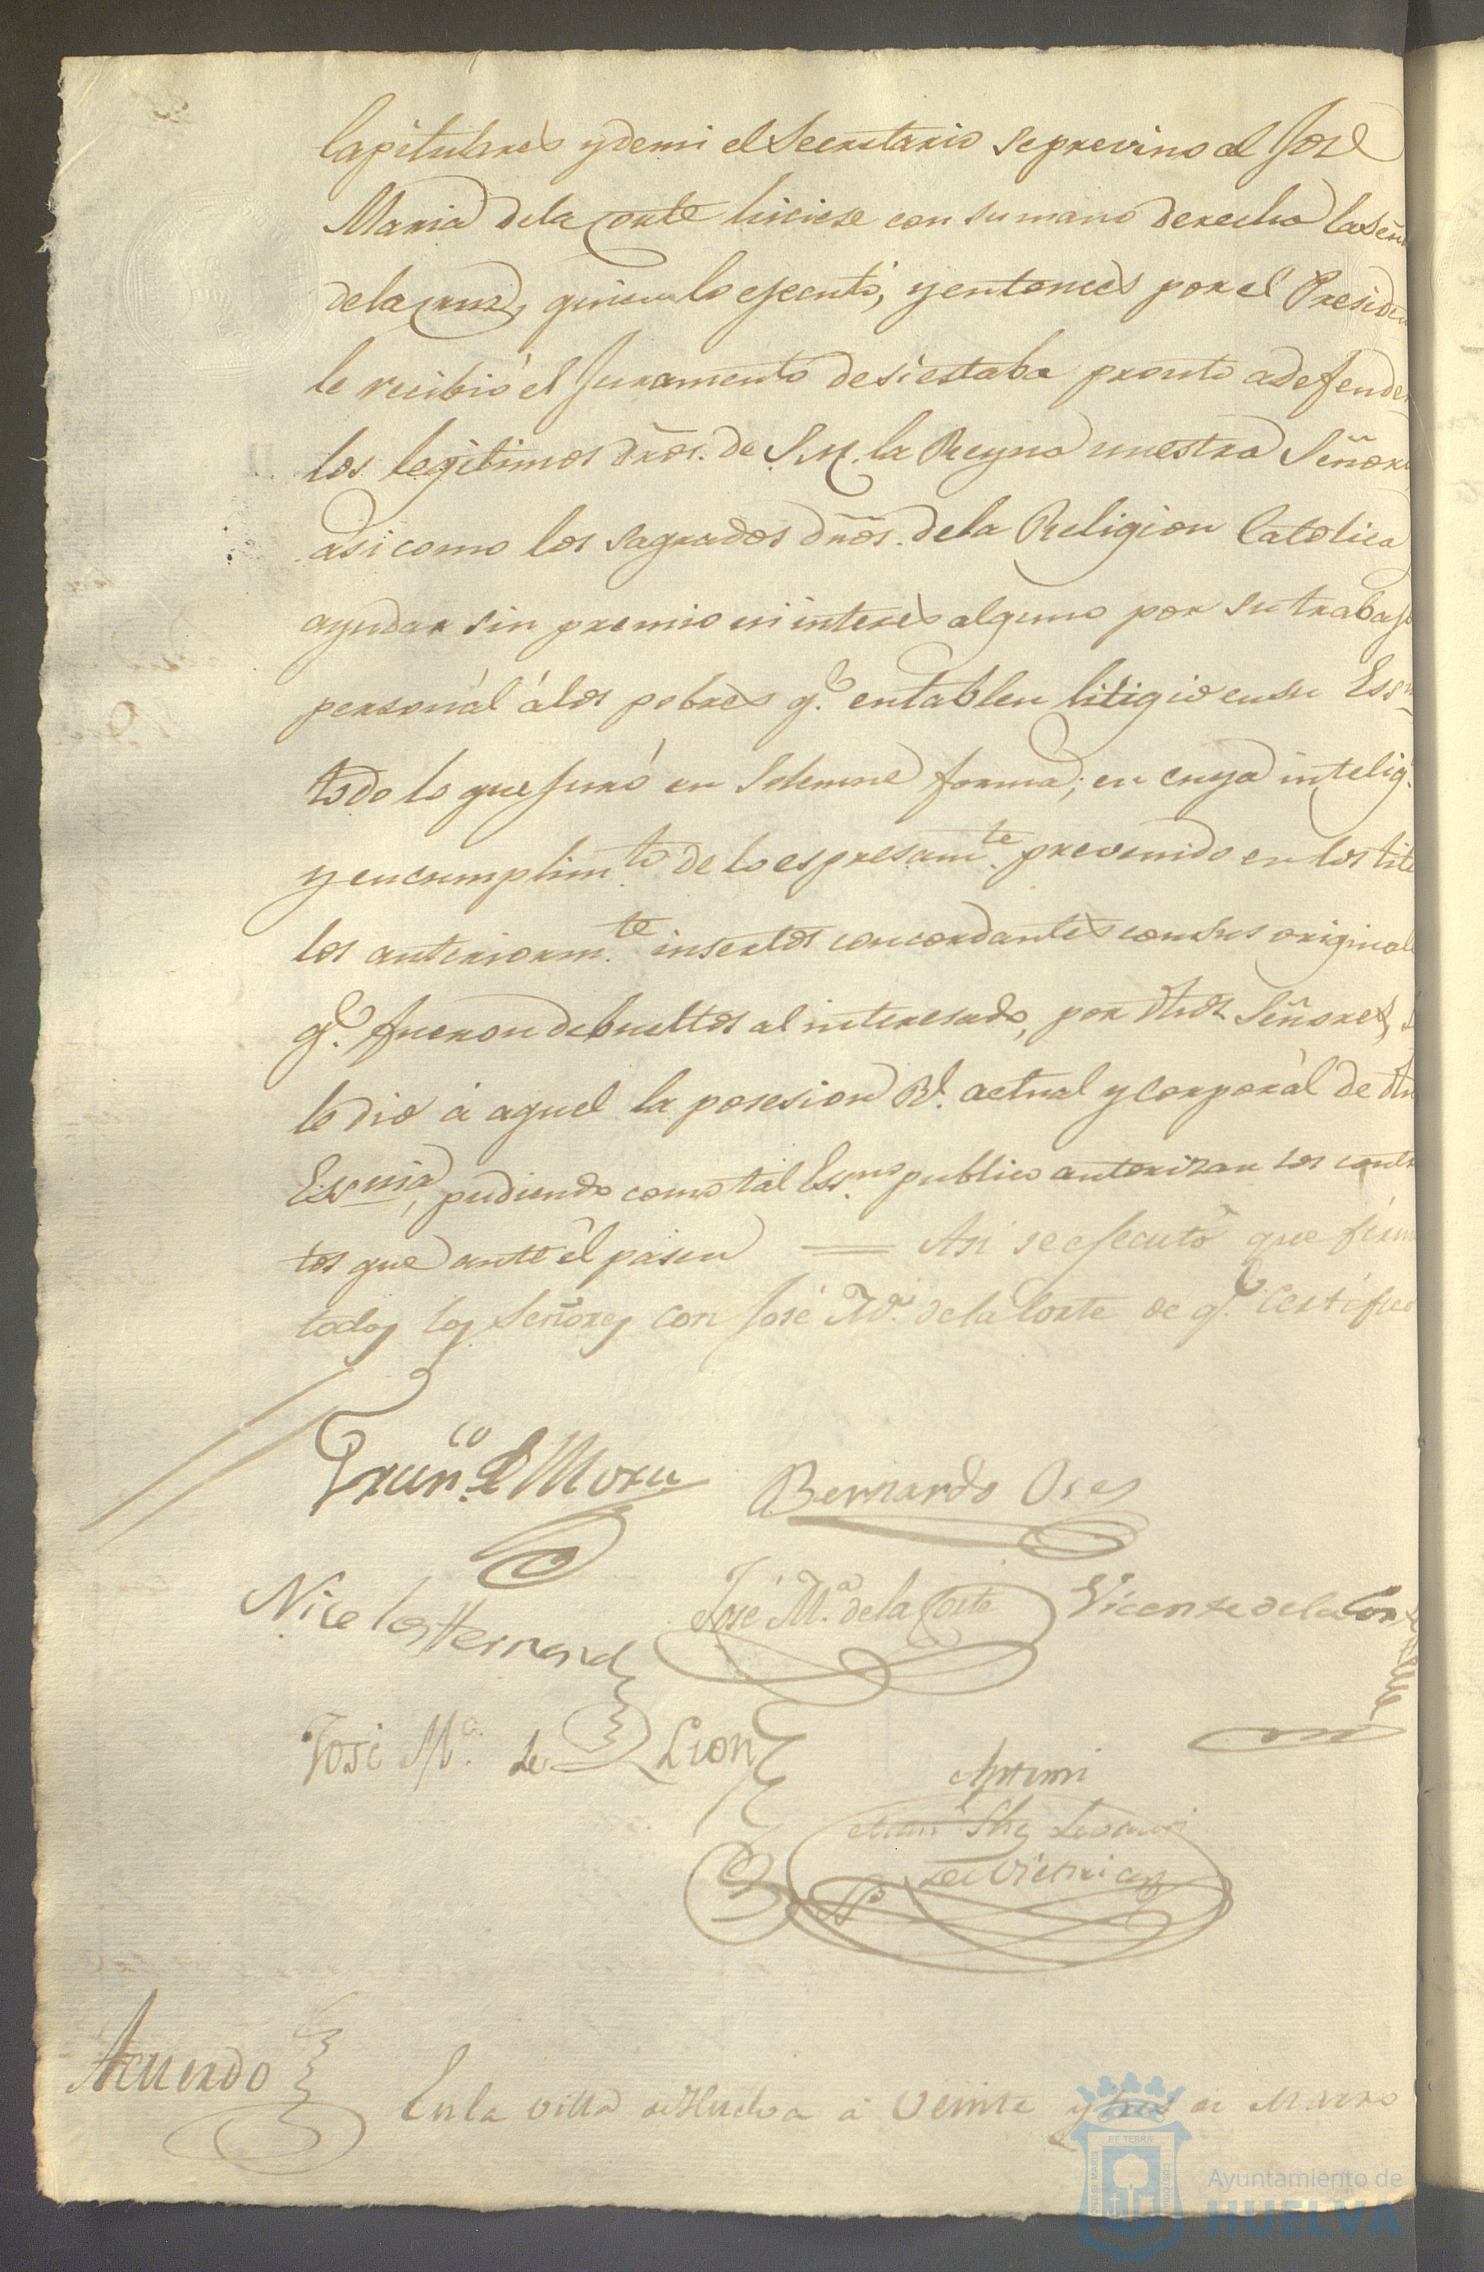 Capitulares y demi el Secretario se previno al José
Maria dela Corte hiciese con su mano derecha la Señ
dela Cruz, quien lo ejecutó, y entonces por el Presiden
le recibió el Juramento de si estaba pronto a defender
los legitimos dros. de S.M. la Reyna nuestra Señora
asi como los sagrados dros. dela Religion Catolica
ayudar sin premio ni interes alguno por su trabajo
personál á los pobres q.e entablen litigio en su Ess.na
todo lo que juró en solemne forma; en cuya intelig.a
y en cumplim.to de lo espresam.te prevenido en los titu
los anteriorm.te insertos concordantes con sus original
q.e fueron debueltos al interesado, por dhos Señores, s
le dió á aquel la posesion Rl. actual y corporál de dha
Essnia, pudiendo como tal Ess.no publico autorizar los contra
tos que ante él pasen = Asi se ejecutó que firm
todos los Señores con José M.a dela Corte de q.e Certifico
Fran.co de Mora
Bernardo Oses
Nicolas Hernand
José M.a dela Corte
Vicente de la Corte
José M.a de Leon
Ante mi
de Viernias
Acuerdo
En la villa de Huelva á veinte y tres de Marzo
Ayuntamiento de
HUELVA